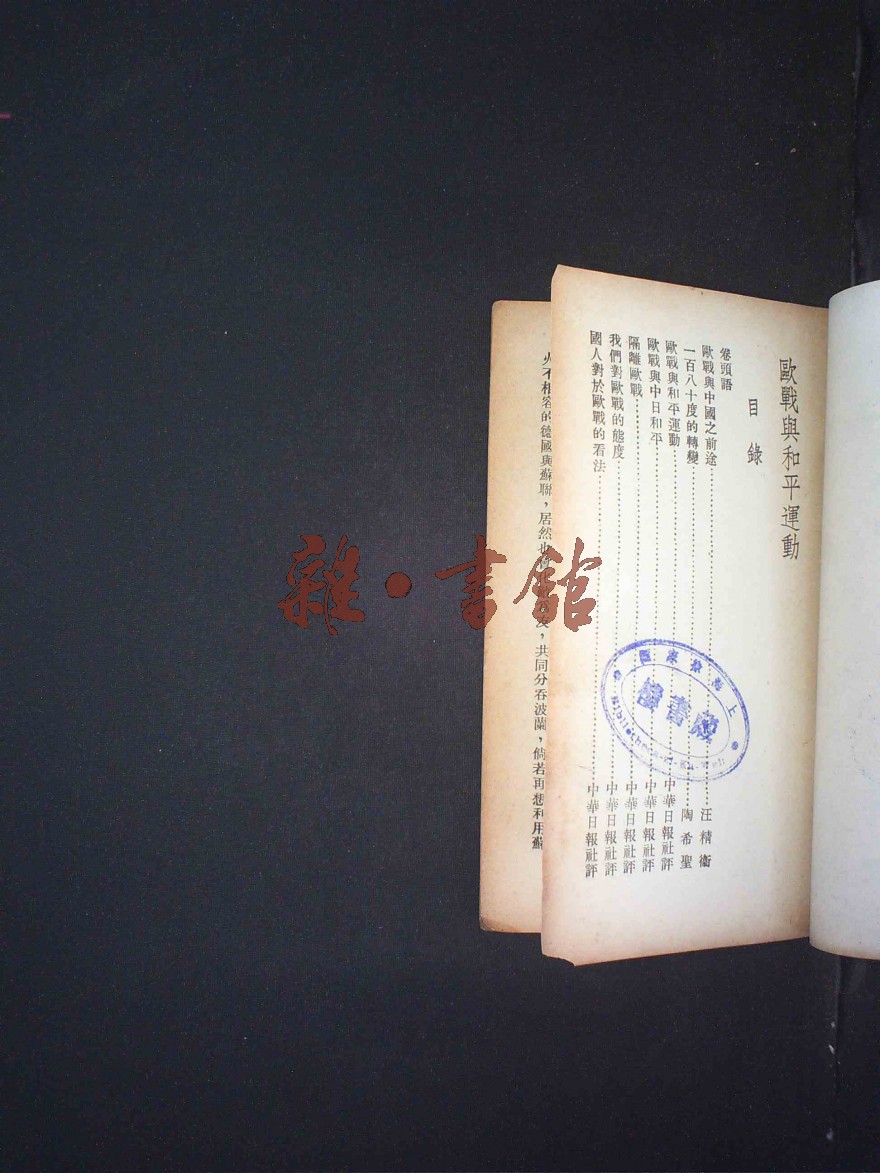 歐戰與和平運動
目錄
卷頭語
歐戰與中國之前途……汪精衛
一百八十度的轉變……陶希聖
歐戰與和平運動……中華日報社評
歐戰與中日和平……中華日報社評
隔離歐戰……中華日報社評
我們對歐戰的態度……中華日報社評
國人對於歐戰的看法……中華日報社評
火不相容的德國與蘇聯，居然也
友，共同分吞波蘭，倘若再想利用蘇
上海徐家匯
藏書樓
雜·書館